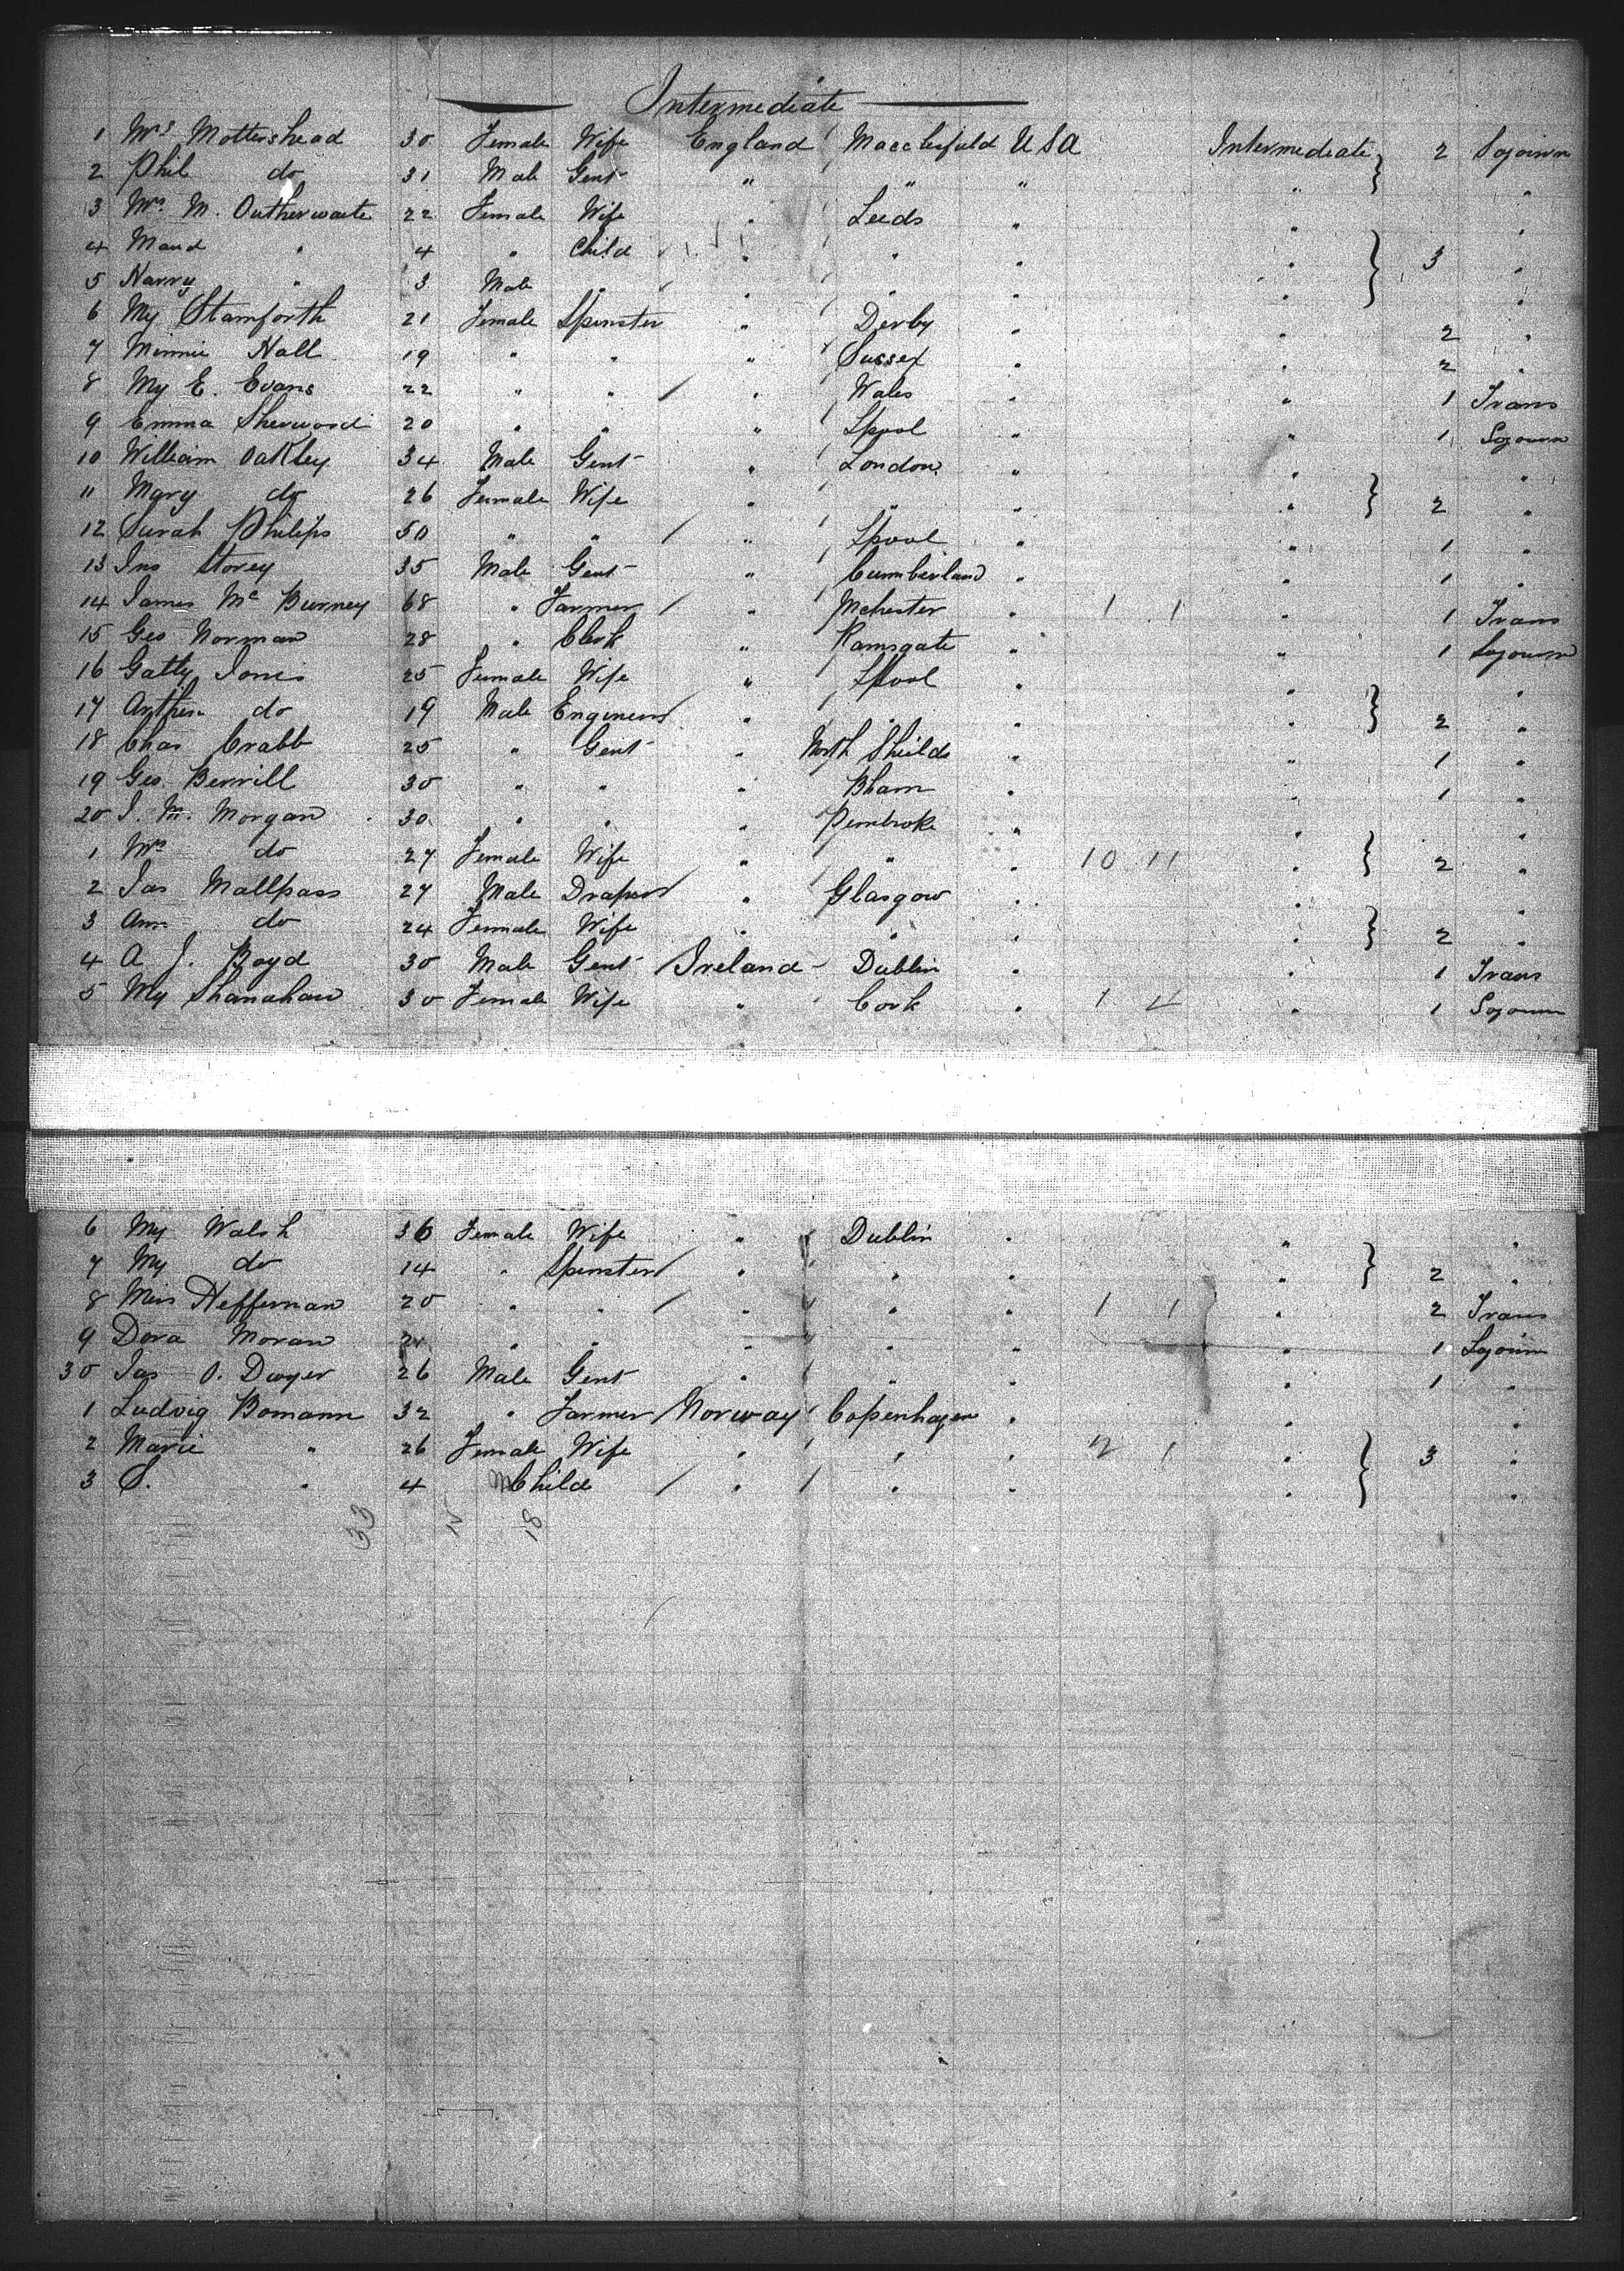 Intermediate
1 Mrs Mottershead 30 Female Wife England Macclesfield USA Intermediate 2 Sojourn
2 Phil do 31 Male Gent " " " " "
3 Mrs M. Outherwaite 22 Female Wife " Leeds " " "
4 Maud " 4 " Child " " " " 3 "
5 Harry " 3 Male " " " " " "
6 My Stamforth 21 Female Spinster " Derby " " 2 "
7 Minnie Hall 19 " " " Sussex " " 2 "
8 My E. Evans 22 " " " Wales " " 1 Trans
9 Emma Sherwood 20 " " " Lpool " " 1 Sojourn
10 William Oakley 34 Male Gent " London " " "
11 Mary do 26 Female Wife " " " " 2 "
12 Sarah Philips 50 " " " Lpool " " 1 "
13 Jno Storey 35 Male Gent " Cumberland " " 1 "
14 James Mc Burney 68 " Farmer " Mchester " 1 1 " 1 Trans
15 Geo Norman 28 " Clerk " Ramsgate " " 1 Sojourn
16 Gatty Jones 25 Female Wife " Lpool " " "
17 Arthur do 19 Male Engineer " " " " 2 "
18 Chas Crabb 25 " Gent " North Shields " " 1 "
19 Geo. Berrill 30 " " " Bham " " 1 "
20 J. M. Morgan 30 " " " Pembroke " " "
1 Mrs do 27 Female Wife " " " 10 11 " 2 "
2 Jas Mallpass 27 Male Draper " Glasgow " " "
3 Ann do 24 Female Wife " " " " 2 "
4 A J. Boyd 30 Male Gent Ireland Dublin " " 1 Trans
5 My Shanahan 30 Female Wife " Cork " 1 4 " 1 Sojourn
6 My Walsh 36 Female Wife " Dublin " " "
7 My do 14 " Spinster " " " " 2 "
8 Miss Heffernan 20 " " " " " 1 1 " 2 Trans
9 Dora Moran " " " " " " 1 Sojourn
30 Jas O. Dwyer 26 Male Gent " " " " 1 "
1 Ludvig Bomann 32 " Farmer Norway Copenhagen " " "
2 Marie " 26 Female Wife " " " 2 1 " 3 "
3 S. " 4 m Child " " " " "
33 15 18